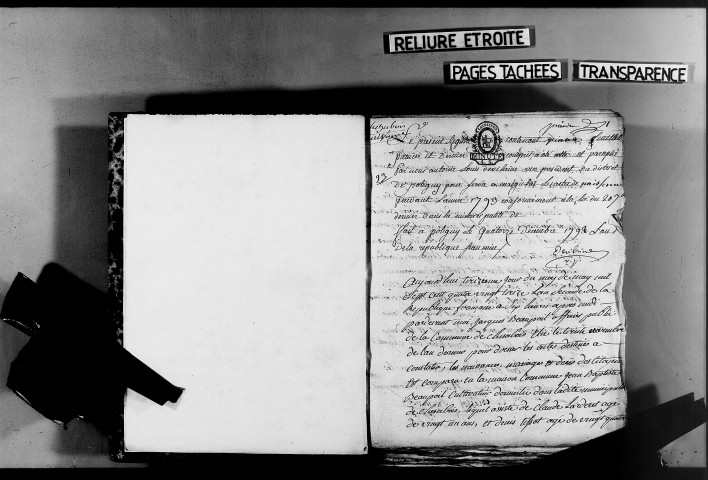 RELIURE ETROITE
PAGES TACHEES
TRANSPARENCE
Le présent Registre contenant feuillets
premier et dernier compris a été et paraphé
par nous antoine Louis vice président du district
de poligny pour servir a les actes de naissances
pendant l'année 1793 conformément à la loi du 20 7bre
dernier dans la municipalité de
fait a poligny le quatorze Decembre 1792 L'an 1er
de la republique francaise
Aujourd'hui treizieme jour du mois de may mil
sept cent quatre vingt treize L'an second de la
Republique française a six heures après midi
pardevant moi Jacques Beaupoil officier public
de la Commune de Chevalins Elu le trente novembre
de l'an dernier pour dresser les actes destinés a
constater les naissances, mariages et décès des Citoyens
Est comparu en la maison Commune Jean Baptiste
Beaupoil Cultivateur domicilié dans ladite municipalité
de lequel assisté de Claude agé
de vingt un ans, et denis Tissot agé de vingt quatre